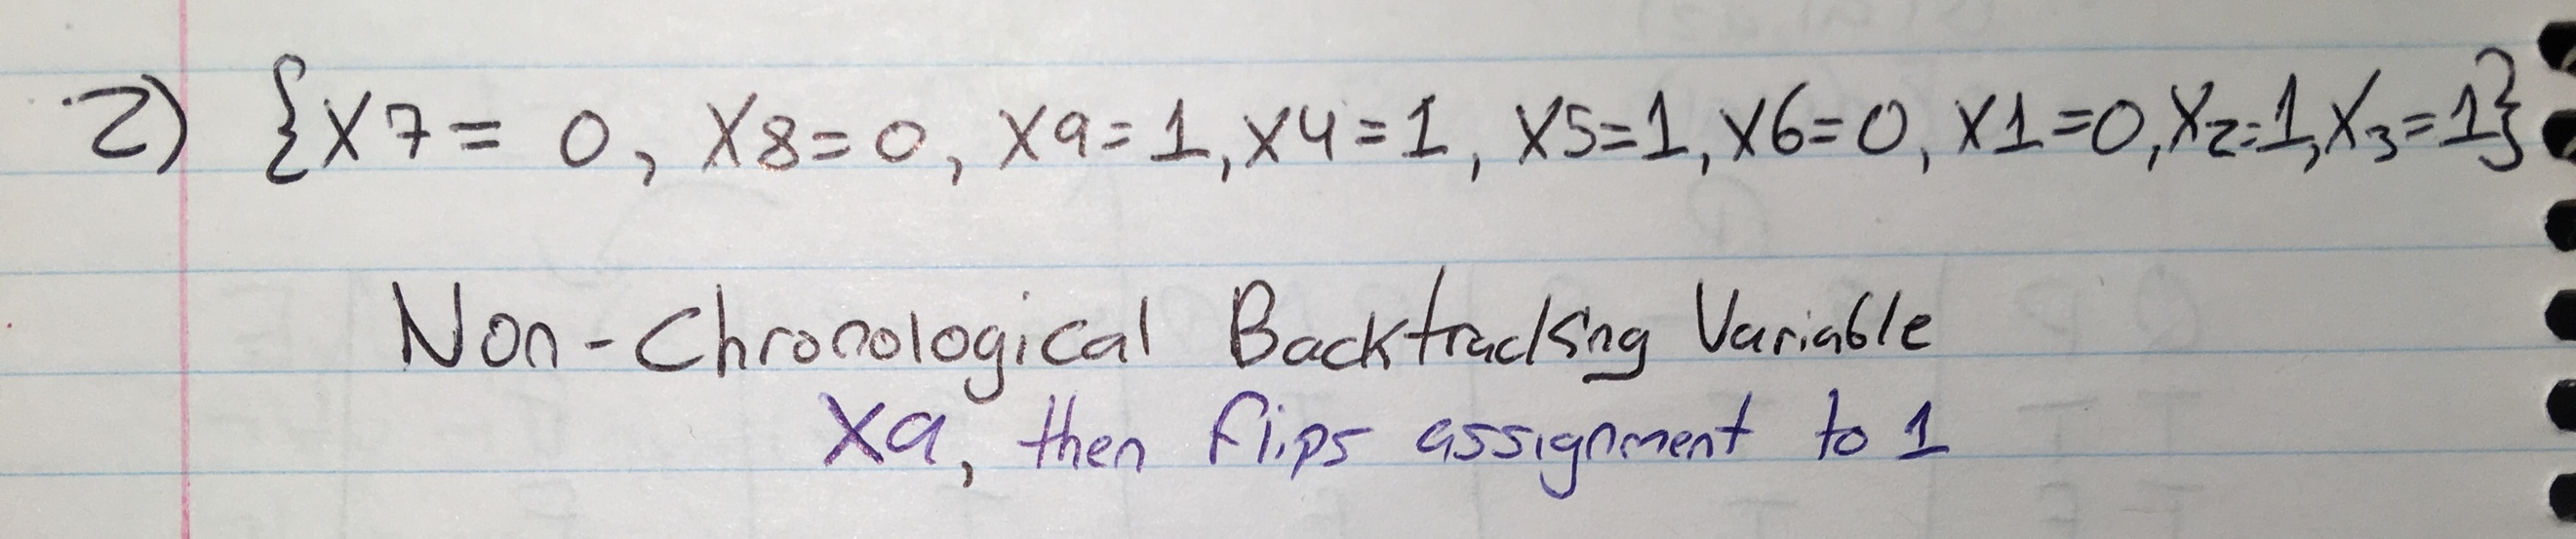 2) {X7= 0, X8=0, X9=1, X4=1, X5=1, X6=0, X1=0, X2=1, X3=1}
Non-Chronological Backtracking Variable
X9, then flips assignment to 1